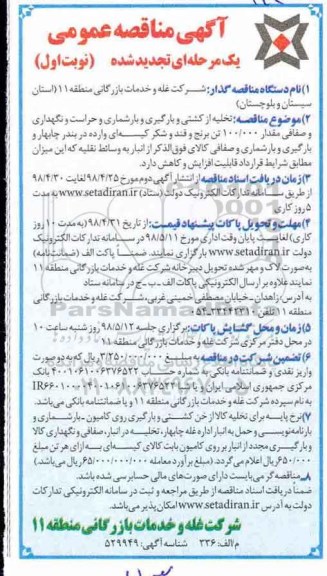 آگهی مناقصه عمومی
یک مرحله‌ای تجدید شده (نوبت اول)
۱) نام دستگاه مناقصه گذار: شرکت غله و خدمات بازرگانی منطقه ۱۱ (استان
سیستان و بلوچستان)
۲) موضوع مناقصه: تخلیه از کشتی و بارگیری و بارشماری و حراست و نگهداری
و صفافی مقدار ۱۰۰/۰۰۰ تن برنج و قند و شکر کیسه‌ای وارده در بندر چابهار و
بارگیری و بارشماری و صفافی کالای فوق الذکر از انبار به وسائط نقلیه که این میزان
مطابق شرایط قرارداد قابلیت افزایش و کاهش دارد.
۳) زمان دریافت اسناد مناقصه: از انتشار آگهی دوم مورخ ۹۸/۴/۲۵ لغایت ۹۸/۴/۳۰
از طریق سامانه تدارکات الکترونیک دولت (ستاد) www.setadiran.ir به مدت
۵ روز کاری
۴) مهلت و تحویل پاکات پیشنهاد قیمت: از تاریخ ۹۸/۴/۳۱ (به مدت ۱۰ روز
کاری) لغایت پایان وقت اداری مورخ ۹۸/۵/۱۱ در سامانه تدارکات الکترونیک
دولت www.setadiran.ir بارگزاری نمایند. ضمناً پاکت الف (ضمانت‌نامه)
به صورت لاک و مهر شده تحویل دبیرخانه شرکت غله و خدمات بازرگانی منطقه ۱۱
نمایند علاوه بر ارسال الکترونیکی پاکات الف ـ ب ـ ج در سامانه ستاد
به آدرس: زاهدان ـ خیابان مصطفی خمینی غربی، شرکت غله و خدمات بازرگانی
منطقه ۱۱ تلفن:
۵) زمان و محل گشایش پاکات: برگزاری جلسه ۹۸/۵/۱۲ روز شنبه ساعت ۱۰
در محل دفتر مرکزی شرکت غله و خدمات بازرگانی منطقه ۱۱
۶) تضمین شرکت در مناقصه به مبلغ ۳/۲۵۰/۰۰۰/۰۰۰ ریال که به دو صورت
واریز نقدی و ضمانتنامه بانکی به شماره حساب بانک
مرکزی جمهوری اسلامی ایران و یا
به نام سپرده شرکت غله و خدمات بازرگانی منطقه ۱۱ و یا ضمانتنامه بانکی می‌باشد.
۷) نرخ پایه برای تخلیه کالا از خن کشتی و بارگیری روی کامیون ـ بارشماری و
بارنامه‌نویسی و حمل به انبار اداره غله چابهار، تخلیه در انبار، صفافی و نگهداری کالا
و بارگیری مجدد از انبار بر روی کامیون بابت کالای کیسه‌ای به ازای هر تن مبلغ
۶۵۰/۰۰۰ ریال اعلام می‌گردد. (مبلغ برآورد معامله ۶۵/۰۰۰/۰۰۰/۰۰۰ ریال می‌باشد)
۸ـ مناقصه‌گر می‌بایست دارای صورت‌های مالی حسابرسی شده باشد.
ضمناً دریافت اسناد مناقصه از طریق مراجعه و ثبت در سامانه الکترونیکی تدارکات
دولت به آدرس www.setadiran.ir امکان پذیر می‌باشد.
شرکت غله و خدمات بازرگانی منطقه ۱۱
م/الف: ۳۳۶ شناسه آگهی: ۵۲۹۹۴۹